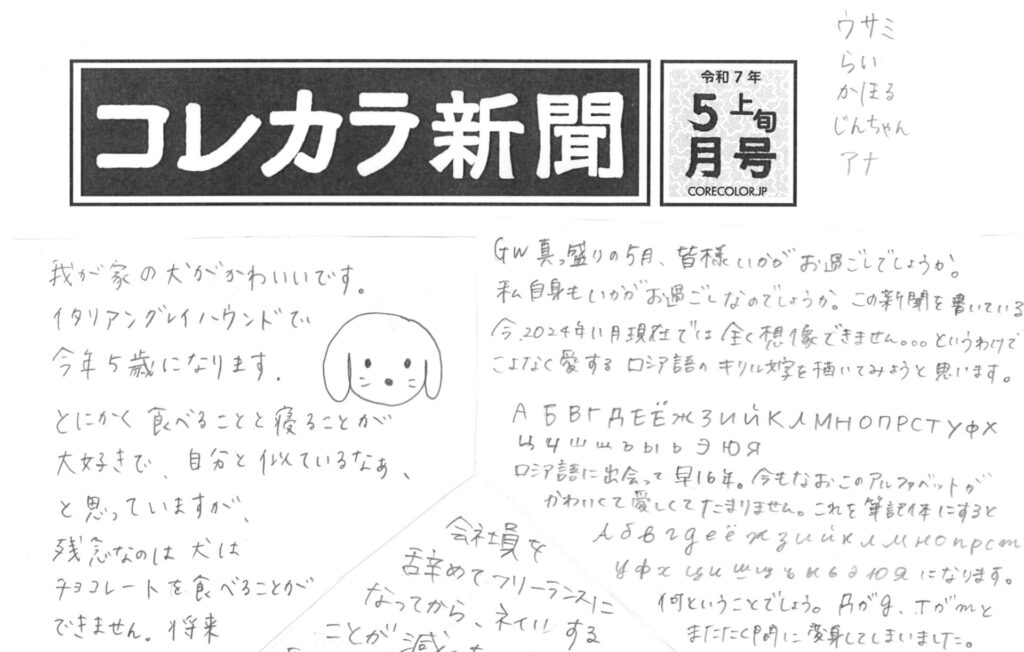 コレカラ新聞
令和7年
5上旬
月号
CORECOLOR.JP
ウサミ
らい
かほる
じんちゃん
アナ
我が家の犬がかわいいです。
イタリアングレイハウンドで
今年5歳になります.
とにかく食べることと寝ることが
大好きで、自分と似ているなぁ、
と思っていますが、
残念なのは犬は
チョコレートを食べることが
できません。将来
GW真っ盛りの5月、皆様いかがお過ごしでしょうか。
私自身もいかがお過ごしなのでしょうか。この新聞を書いている
今、2024年11月現在では全く想像できません。。。というわけで
こよなく愛するロシア語のキリル文字を描いてみようと思います。
А Б В Г Д Е Ё Ж З И Й К Л М Н О П Р С Т У Ф Х
Ц Ч Ш Щ Ъ Ы Ь Э Ю Я
ロシア語に出会って早16年。今もなおこのアルファベットが
かわいくて愛しくてたまりません。これを筆記体にすると
А б в г д е ё ж з и й к л м н о п р с т
у ф х ц ч ш щ ъ ы ь э ю я になります。
何ということでしょう。Дがg、Tがmと
またたく間に変身してしまいました。
会社員を
辞めてフリーランスに
なってから、ネイルする
ことが減っ